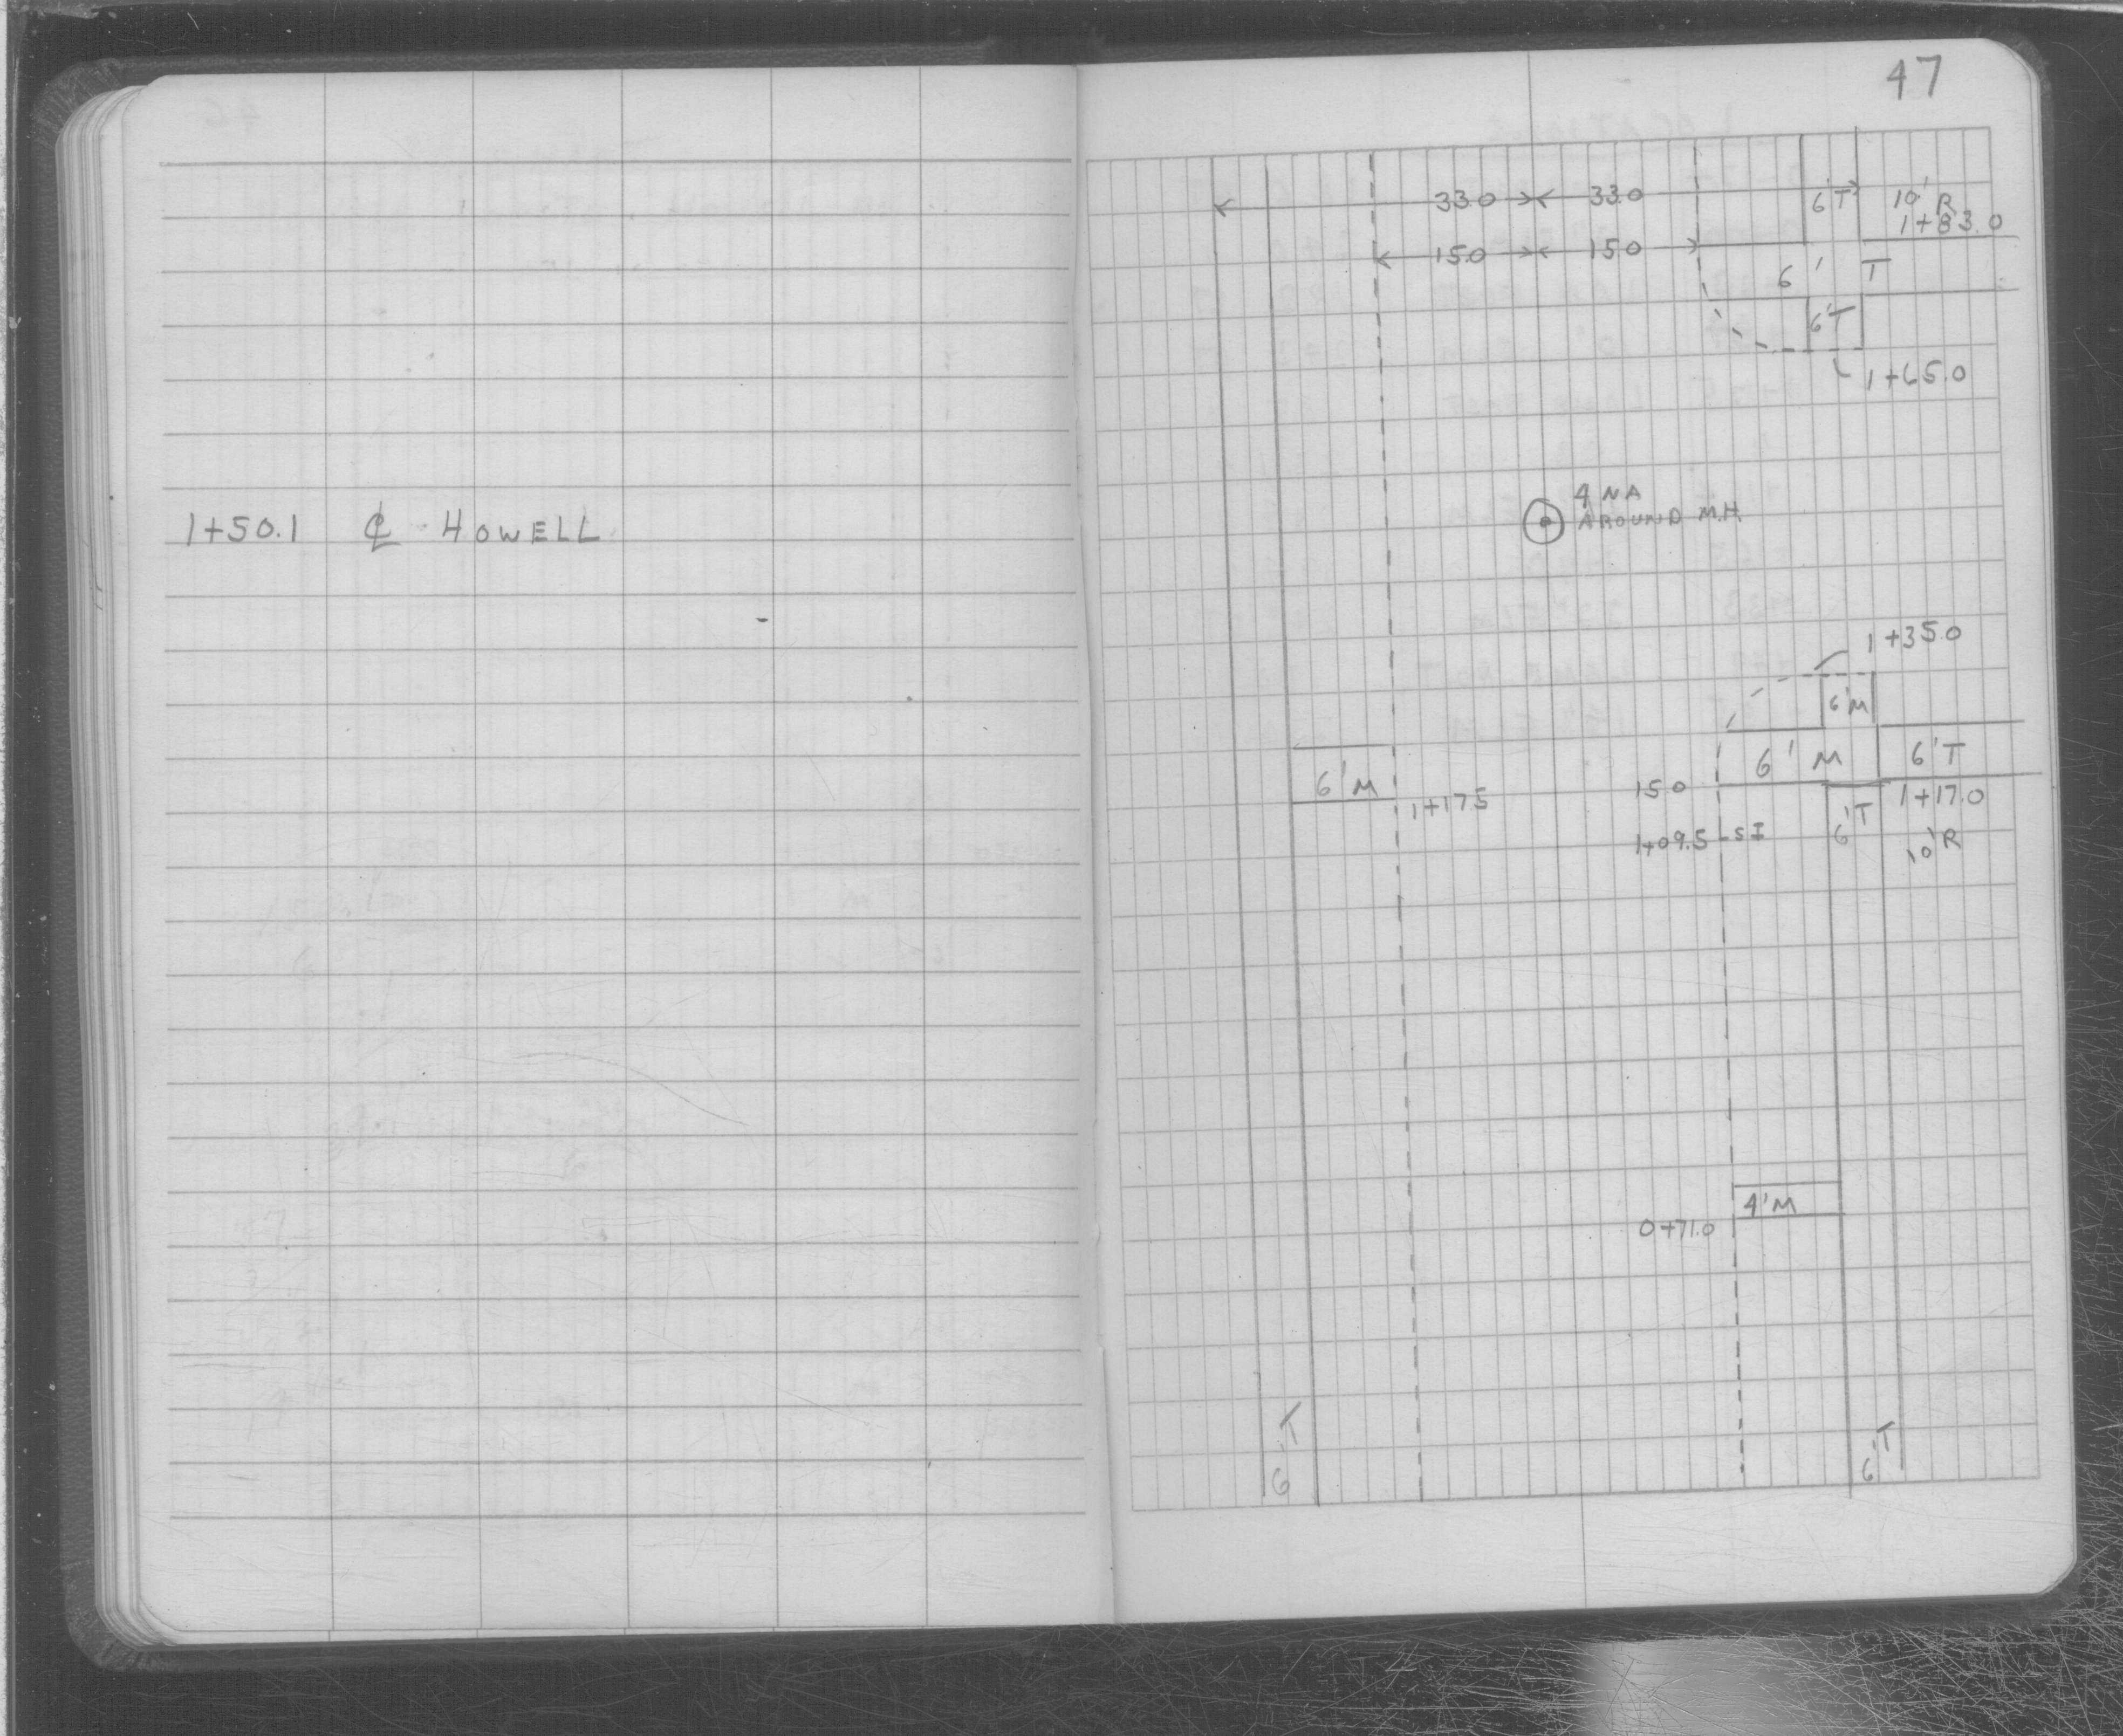 47
33.0 33.0 6'T 10'R
1+83.0
15.0 15.0
6' T
6'T
1+65.0
4 NA
AROUND M.H.
1+50.1 ℄ HOWELL
1+35.0
6'M
6'M 6'T
6'M 1+17.5 15.0 1+17.0
6'T
1+09.5 SI 10'R
4'M
0+71.0
6'T 6'T